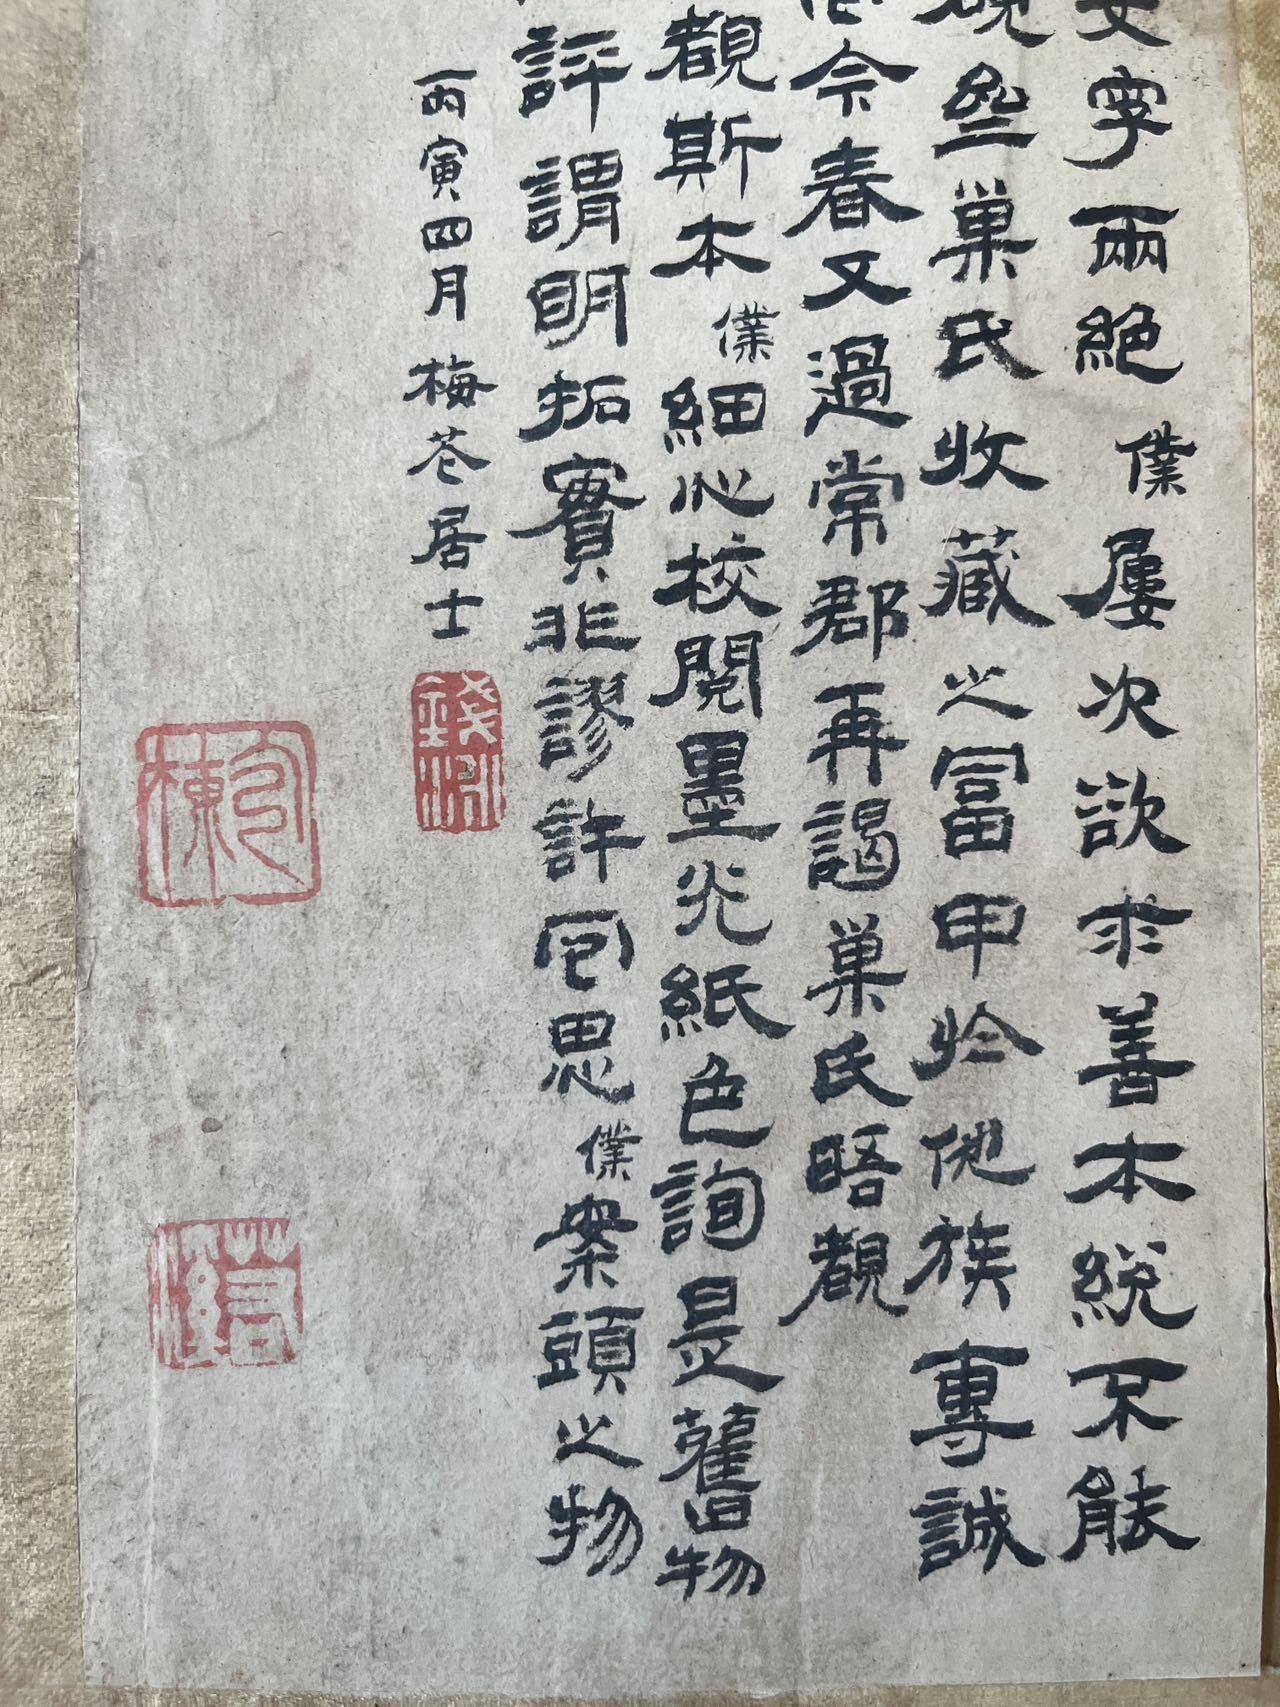 文字兩絕僕屢次欲求善本總不能
巢氏收藏之富甲於他族專誠
今春又過常郡再謁巢氏晤觀
觀斯本僕細心校閱墨光紙色詢是舊物
評謂明拓實非謬許因思僕案頭之物
丙寅四月梅花居士
錢泳